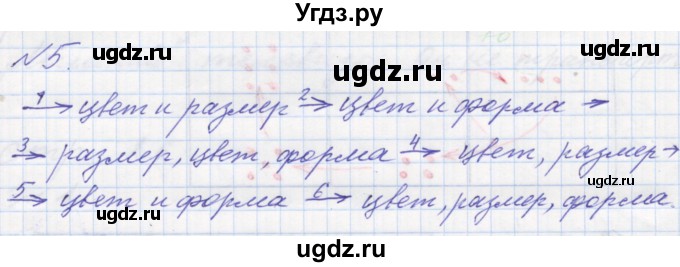 Угдз.ру
ugdz.ru ugdz.ru
№5.
1→ цвет и размер 2→ цвет и форма →
ugdz.ru ugdz.ru
3→ размер, цвет, форма 4→ цвет, размер→
5→ цвет и форма 6→ цвет, размер, форма.
ugdz.ru ugdz.ru
ugdz.ru